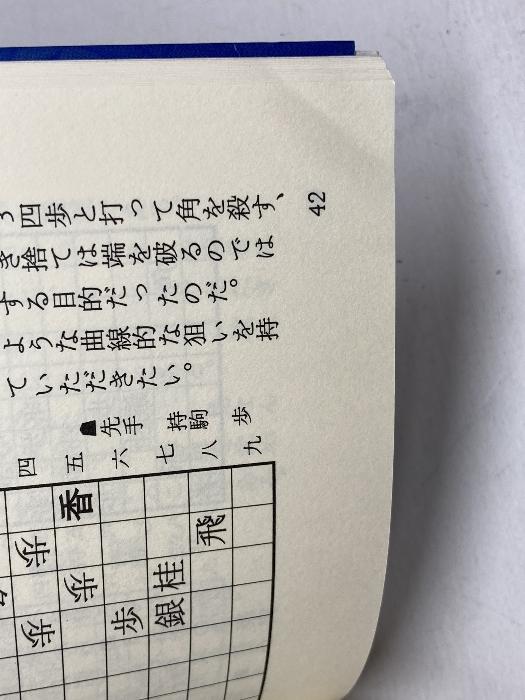 四歩と打って角を殺す、
き捨ては端を破るのでは
する目的だったのだ。
ような曲線的な狙いを持
ていただきたい。
☗先手 持駒 歩
四 五 六 七 八 九
香
歩 飛
歩 桂
歩 歩 銀
42